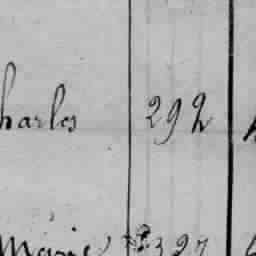 harles 292
Marie 327